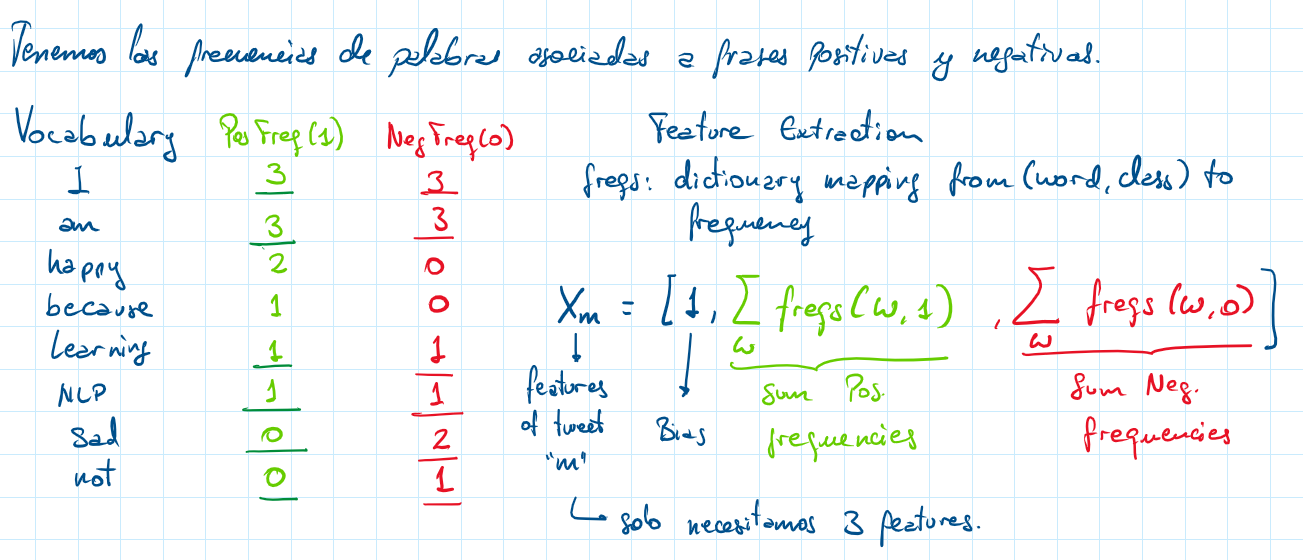 Tenemos las frecuencias de palabras asociadas a frases positivas y negativas.
Vocabulary PosFreq(1) NegFreq(0)
I 3 3
am 3 3
happy 2 0
because 1 0
learning 1 1
NLP 1 1
sad 0 2
not 0 1
Feature Extraction
freqs: dictionary mapping from (word, class) to
frequency
Xm = [1, ∑ freqs(w,1) , ∑ freqs(w,0)]
w w
features
of tweet
"m"
Bias
Sum Pos.
frequencies
Sum Neg.
frequencies
solo necesitamos 3 features.